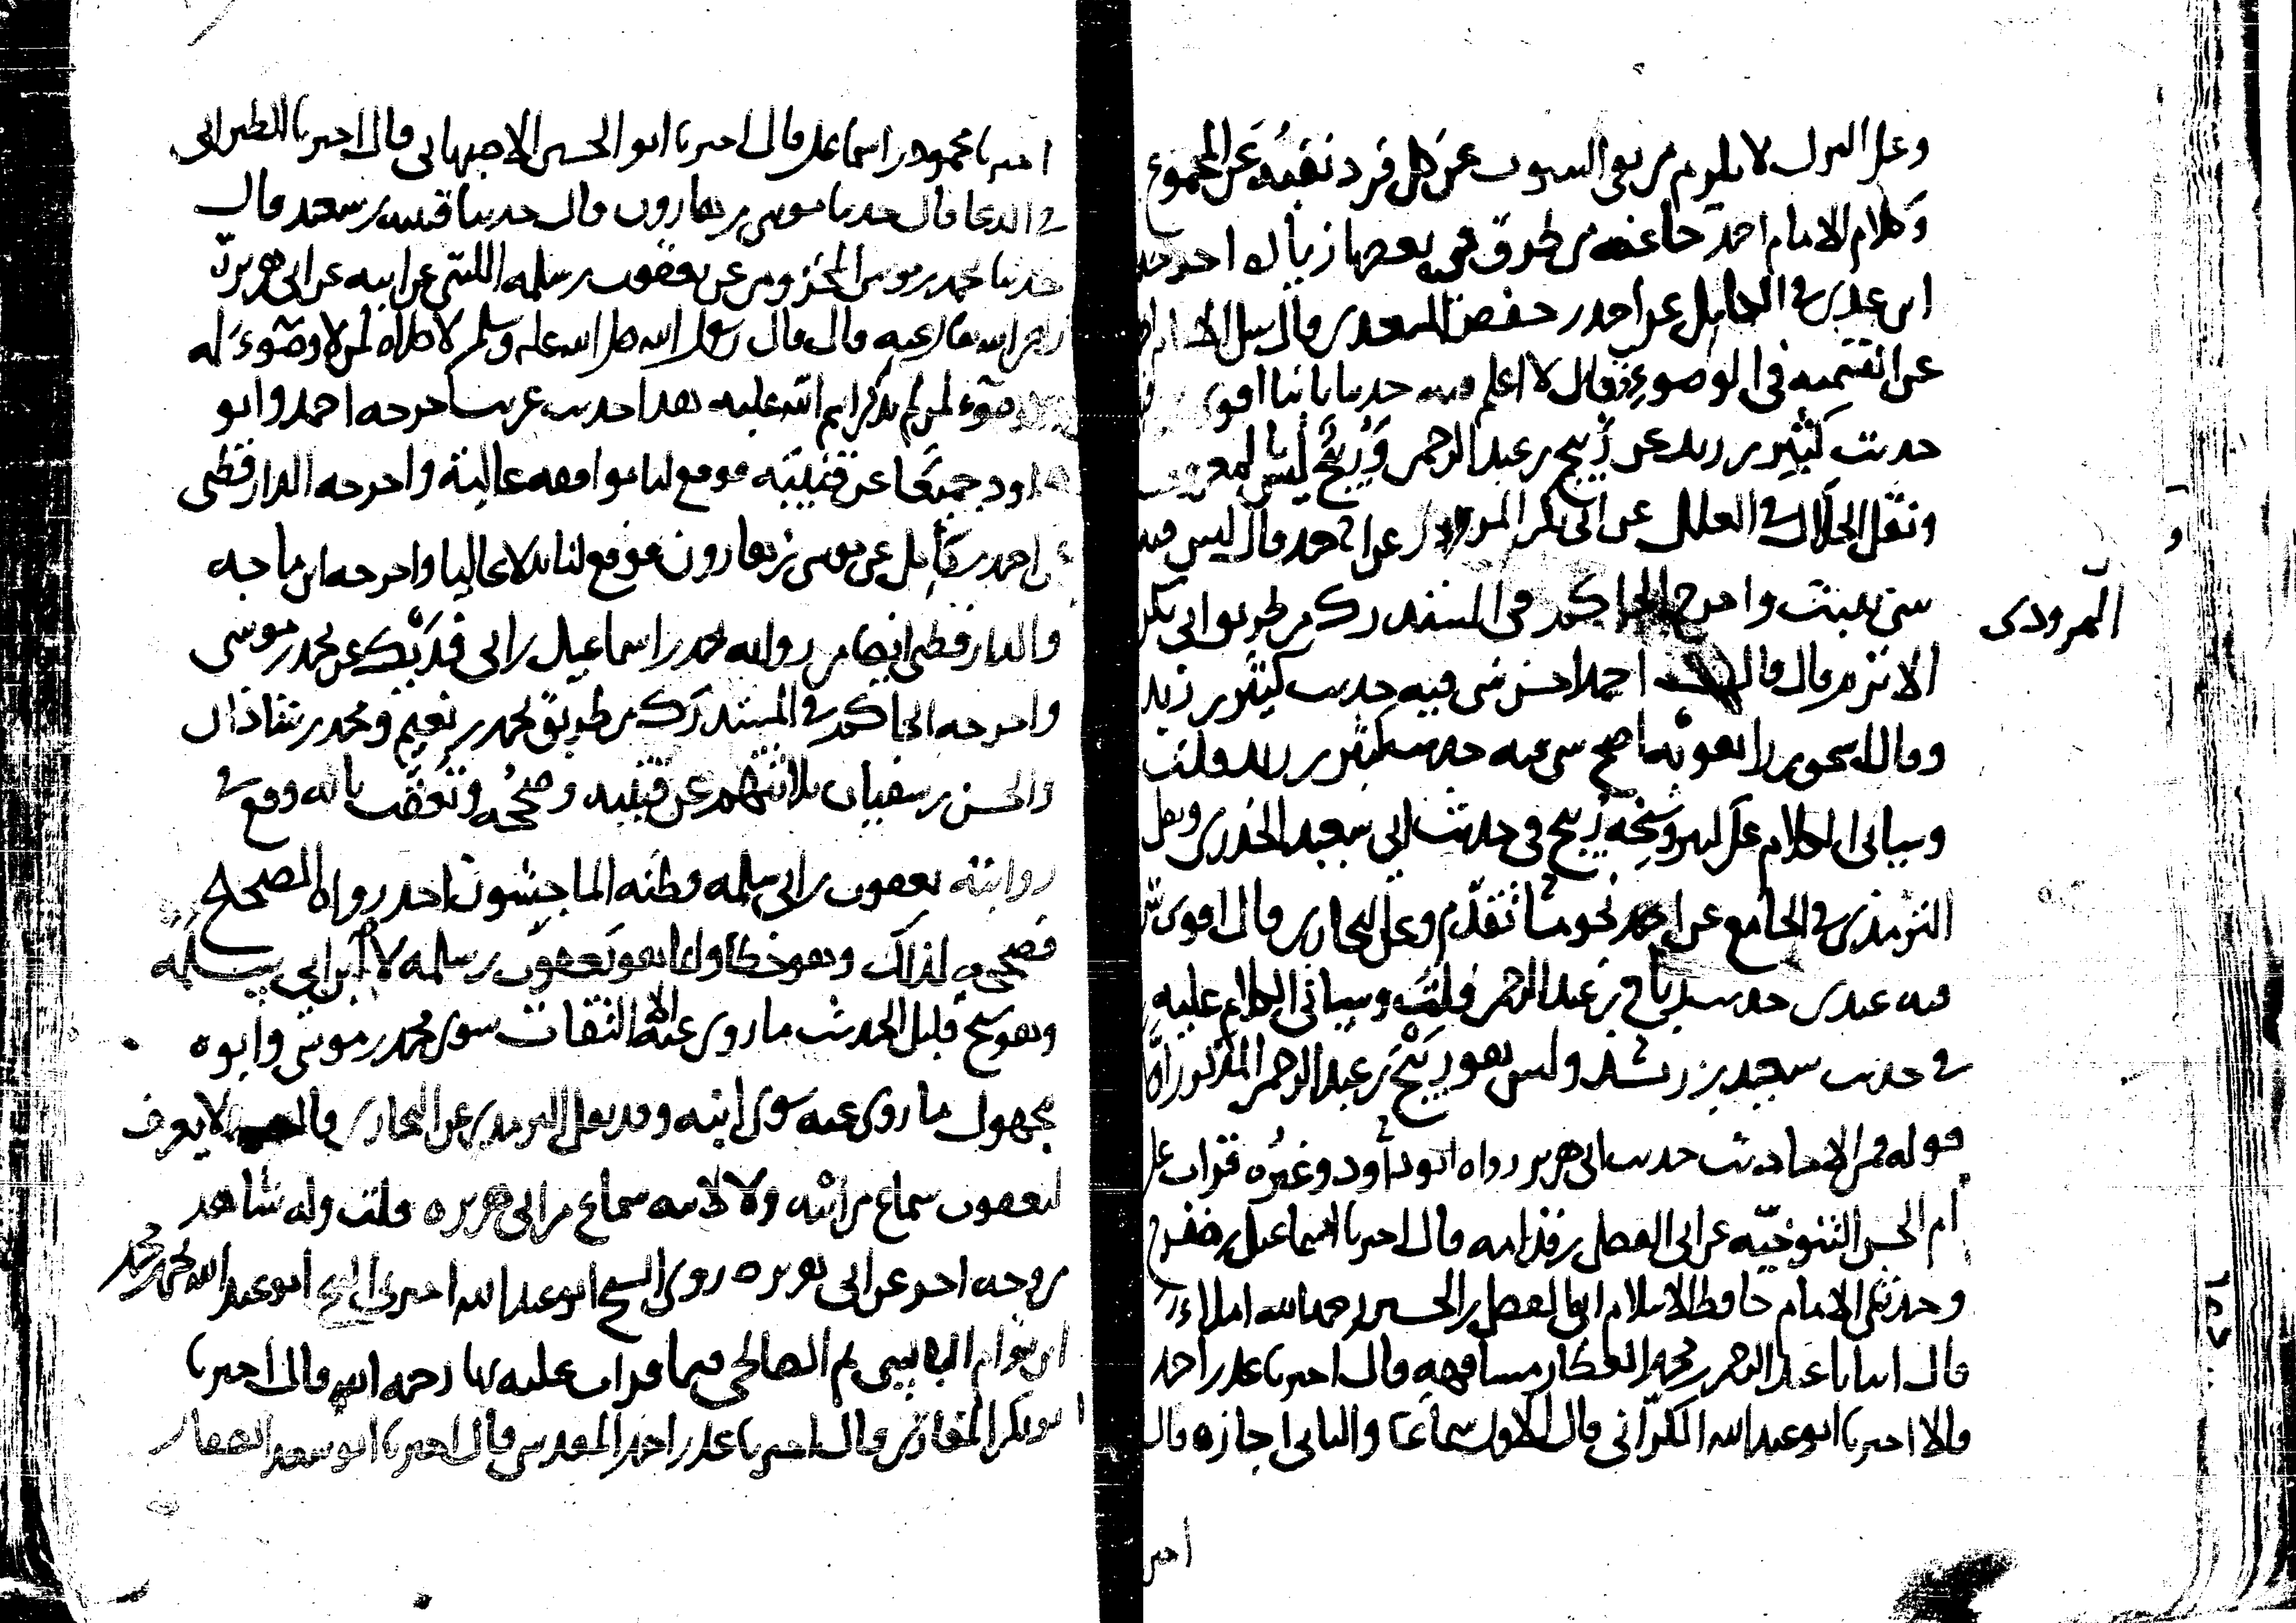 وعلى التنزل لا يلزم من نفي الثبوت عن كل فرد نفيه عن المجموع
وكلام الامام احمد جاء عنه من طرق في بعضها زيادة اخرجه
ابن عدي في الكامل عن احمد بن حفص السعدي قال سئل احمد
عن التسمية في الوضوء فقال لا اعلم فيه حديثا ثابتا اقوى
حديث كثير بن زيد عن ربيح بن عبد الرحمن وربيح ليس بالمعروف
ونقل الخلال في العلل عن ابي بكر المروذي عن احمد قال ليس فيه
شي يثبت واخرج الحاكم في المستدرك من طريق ابي بكر
الاثرم قال قال احمد احسن شي فيه حديث كثير بن زيد
وقال اسحق بن راهويه اصح شي فيه حديث كثير بن زيد قلت
وسياتي الكلام على كثير وشيخه ربيح في حديث ابي سعيد الخدري ونقل
الترمذي في الجامع عن احمد نحو ما تقدم وعن البخاري قال اقوى شي
فيه عندي حديث رباح بن عبد الرحمن قلت وسياتي الكلام عليه
في حديث سعيد بن زيد وليس هو ربيح بن عبد الرحمن المذكور اولا
قوله فمن الاحاديث حديث ابي هريرة رواه ابو داود وغيره قرات على
ام الحسن التنوخية عن ابي الفضل بن قدامة قال اخبرنا اسماعيل بن ظفر ح
وحدثني الامام حافظ الاسلام ابو الفضل بن الحسين رحمه الله املاء
قال انبانا عبد الرحمن بن محمد العطار مشافهة قال اخبرنا علي بن احمد
قالا اخبرنا ابو عبد الله الكراني قال الاول سماعا والثاني اجازة قال
اخبر
المروذي
اخبرنا محمود بن اسماعيل قال اخبرنا ابو الحسين الاصبهاني قال اخبرنا الطبراني
في الدعا قال حدثنا موسى بن هارون قال حدثنا قتيبة بن سعيد قال
حدثنا محمد بن موسى المخزومي عن يعقوب بن سلمة الليثي عن ابيه عن ابي هريرة
رضي الله تعالى عنه قال قال رسول الله صلى الله عليه وسلم لا صلاة لمن لا وضوء له
ولا وضوء لمن لم يذكر اسم الله عليه هذا حديث غريب اخرجه احمد وابو
داود جميعا عن قتيبة فوقع لنا موافقة عالية واخرجه الدارقطني
عن احمد بن كامل عن موسى بن هارون فوقع لنا بدلا عاليا واخرجه ابن ماجه
والدارقطني ايضا من رواية محمد بن اسماعيل بن ابي فديك عن محمد بن موسى
واخرجه الحاكم في المستدرك من طريق محمد بن نعيم ومحمد بن شاذان
والحسن بن سفيان ثلاثتهم عن قتيبة وصححه وتعقب بانه وقع في
روايته يعقوب بن ابي سلمة وظنه الماجشون احد رواة الصحيح
فصححه لذلك وهو خطا وانما هو يعقوب بن سلمة لا ابن ابي سلمة
وهو شيخ قليل الحديث ما روى عنه من الثقات سوى محمد بن موسى وابوه
مجهول ما روى عنه سوى ابنه وقد نقل الترمذي عن البخاري قال لا يعرف
ليعقوب سماع من ابيه ولا لابيه سماع من ابي هريرة قلت وله شاهد
من وجه اخر عن ابي هريرة روى الشيخ ابو عبد الله اخبرني الشيخ ابو عبد الله محمد بن محمد
ابن قوام البالسي ثم الصالحي فيما قرات عليه بها رحمه الله قال اخبرنا
ابو بكر المغازي قال اخبرنا علي بن احمد المقدسي قال اخبرنا ابو سعد الصفار